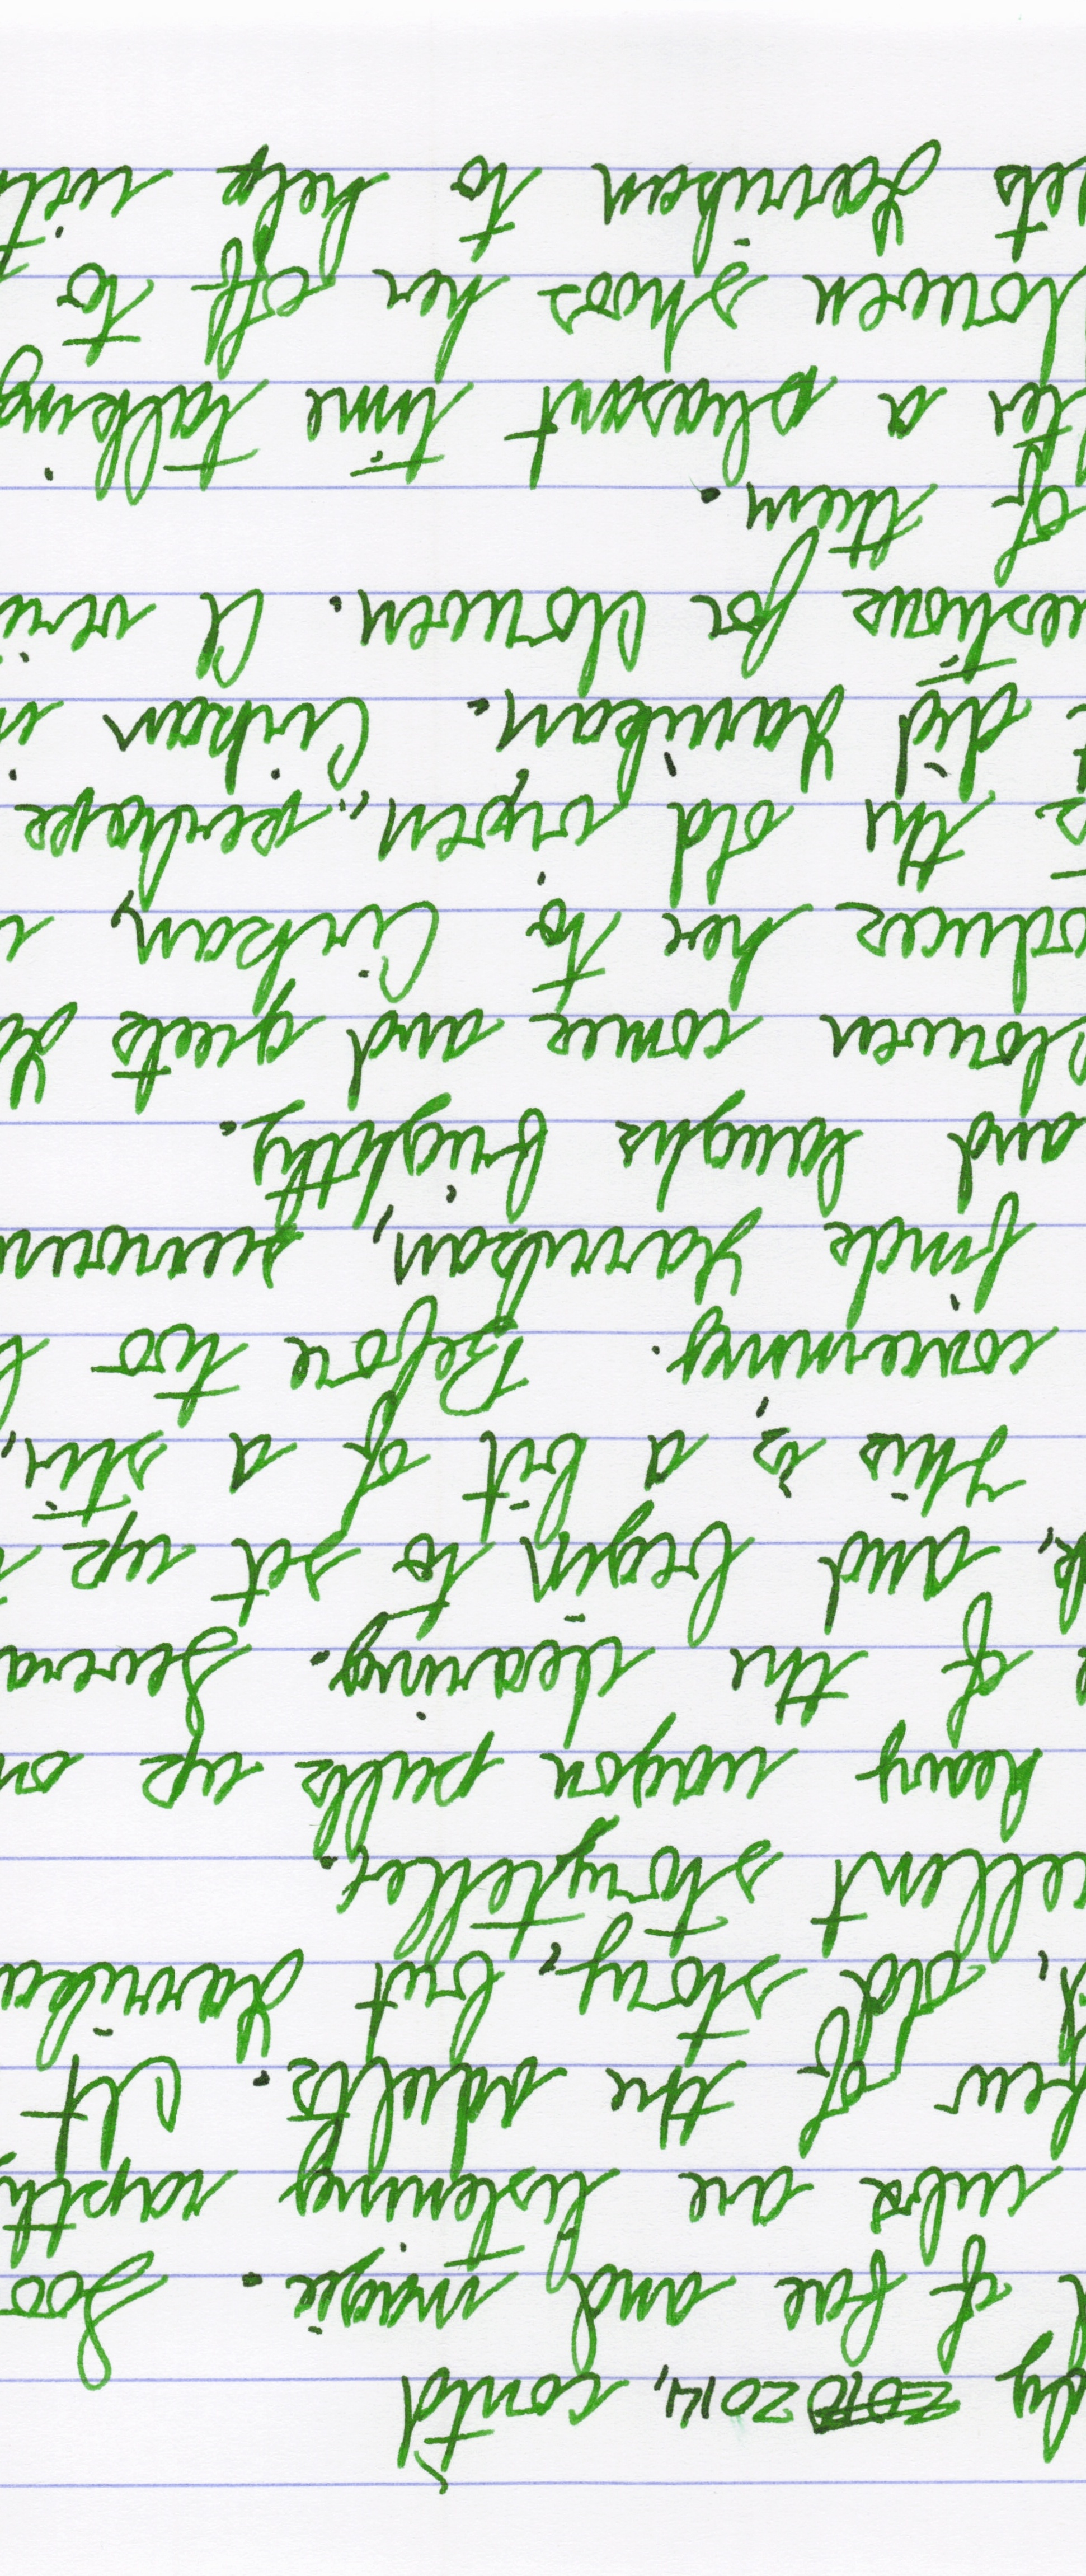 2014, cont'd
of fae and magic. Soo
cubs are listening rapth
few of the adults. It
old story, but Yarrika
ellent storyteller.
heavy wagon pulls up on
of the clearing. Severa
and begin to set up
This is a bit of a stir,
concerning. Before too l
finds Yarrikan,
and laughs brightly.
Lorwen comes and greets Ya
oduces her to Cirkan,
s the old vixen, perhaps
t did Yarrikan. Cirkan
estions for Lorwen. A
of them.
ter a pleasant time talking
Lorwen shoos her off to
ets Yarrikan to help with